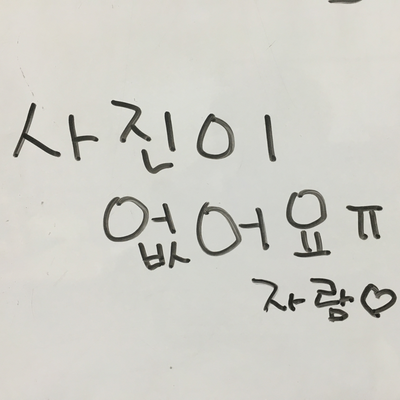 사진이
없어요ㅠ
자람♡